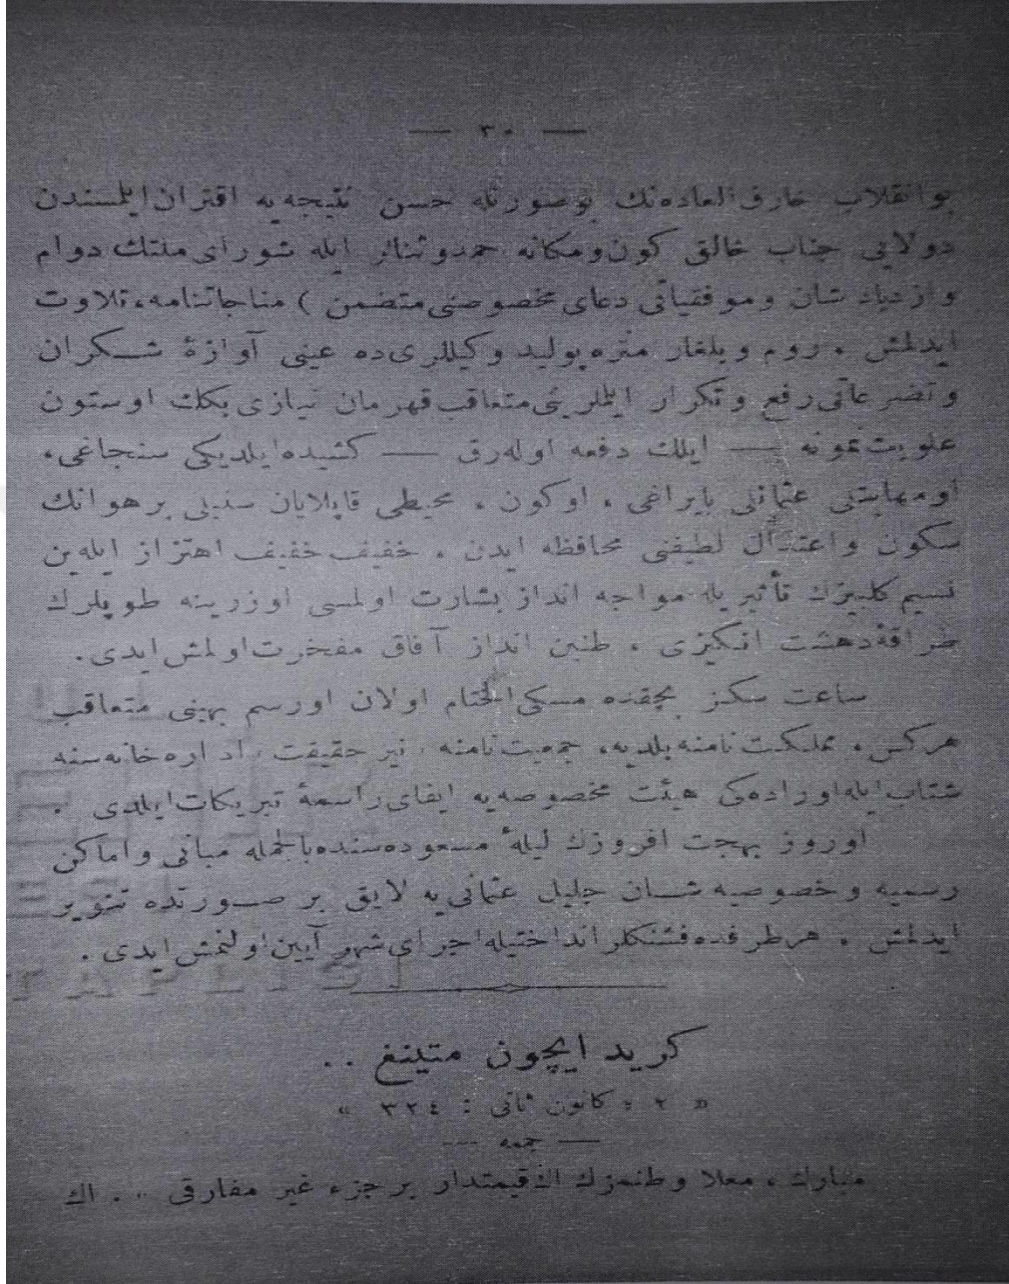 — ٣٠ —
بو انقلاب خارق العاده‌نك بوصورتله حسن نتیجه‌یه اقتران ایلمسندن
دولایی جناب خالق كون و مكانه حمد و ثنالر ایله شورای ملتك دوام
و ازدیاد شان و موفقیاتی دعای مخصوصنی متضمن ) مناجاتنامه، تلاوت
ایدلمش ، روم و بلغار متره پولید وكیللری ده عینی آوازهٔ شكران
و تضرعاتی رفع و تكرار ایتملرینی متعاقب قهرمان نیازی بكك اوستون
علویت نمونه — ایلك دفعه اوله‌رق — كشیده ایلدیكی سنجاغی،
او مهابتلی عثمانلی بایراغی ، اوكون ، محیطی قاپلایان سنبلی بر هوانك
سكون و اعتدال لطیفنی محافظه ایدن ، خفیف خفیف اهتزاز ایله‌ین
نسیم كلبیزك تأثیریله مواجه انداز بشارت اولمسی اوزرینه طوپلرك
طراقهٔ دهشت انكیزی ، طنین انداز آفاق مفخرت اولمش ایدی.
ساعت سكز بچقده مسكی الختام اولان اورسم بهینی متعاقب
هركس، مملكت نامنه بلدیه، جمعیت نامنه نیر حقیقت اداره خانه سنه
شتاب ایله اوراده‌كی هیئت مخصوصه‌یه ایفای راسمهٔ تبریكات ایلدی .
اوروز بهجت افروزك لیلهٔ مسعوده‌سنده بالجمله مبانی و اماكن
رسمیه و خصوصیه شان جلیل عثمانی‌یه لایق بر صورتده تنویر
ایدلمش ، هر طرفده فشنكلر انداختیله اجرای شهر آیین اولنمش ایدی .
كرید ایچون متینغ ..
« ٢ ، كانون ثانی : ٣٢٤ »
— جمعه —
مبارك ، معلا وطنمزك اڭ قیمتدار بر جزء غیر مفارقی .. اڭ